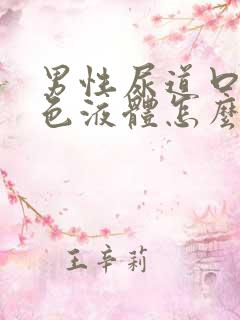 男性尿道口
色液體怎麼
王辛莉